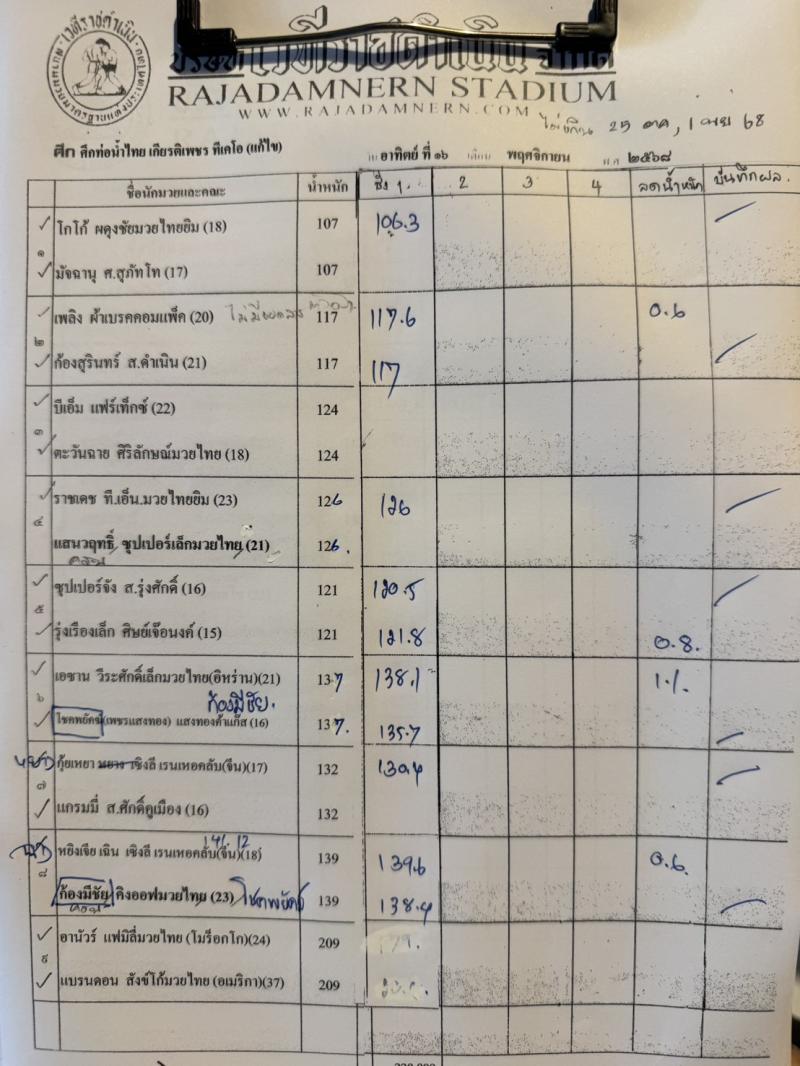 บริษัทเวทีราชดำเนิน จำกัด
RAJADAMNERN STADIUM
WWW.RAJADAMNERN.COM
25 ตค, 1 68
ศึก ศึกท่อน้ำไทย เกียรติเพชร ทีเคโอ (แก้ไข) อาทิตย์ ที่ ๑๖ เดือน พฤศจิกายน พ.ศ ๒๕๖๘
ชื่อนักมวยและคณะ น้ำหนัก ชั่ง 1. 2 3 4 ลดน้ำหนัก บันทึกผล.
✓ โกโก้ ผดุงชัยมวยไทยยิม (18) 107 106.3
๑
✓ มัจฉานุ ศ.สุภัทโท (17) 107
✓ เพลิง ผ้าเบรคคอมแพ็ค (20) 117 117.6 0.6
๒
✓ ก้องสุรินทร์ ส.ดำเนิน (21) 117 117
✓ บีเอ็ม แฟร์เท็กซ์ (22) 124
๓
✓ ตะวันฉาย ศิริลักษณ์มวยไทย (18) 124
✓ ราชเดช ที.เอ็น.มวยไทยยิม (23) 126 126
๔
แสนวฤทธิ์ ซุปเปอร์เล็กมวยไทย (21) 126.
✓ ซุปเปอร์จัง ส.รุ่งศักดิ์ (16) 121 120.5
๕
✓ รุ่งเรืองเล็ก ศิษย์เจ๊อนงค์ (15) 121 121.8 0.8.
✓ เอซาน วีระศักดิ์เล็กมวยไทย(อิหร่าน)(21) 137 138.1 1.1.
๖ ก้องมีชัย.
✓ โชคพยัคฆ์ (เพชรแสงทอง) แสงทองค้าแก๊ส (16) 137. 135.7
กุ้ยเหยา หยาง เชิงลี เรนเหอคลับ(จีน)(17) 132 130.4
๗
✓ แกรมมี่ ส.ศักดิ์ภูเมือง (16) 132
หยิงเจีย เฉิน เชิงลี เรนเหอคลับ(จีน)(18) 139 139.6 0.6.
๘
ก้องมีชัย คิงออฟมวยไทย (23) โชคพยัคฆ์ 139 138.4
✓ อานัวร์ แฟมิลี่มวยไทย (โมร็อกโก)(24) 209
๙
✓ แบรนดอน สังข์โก้มวยไทย (อเมริกา)(37) 209